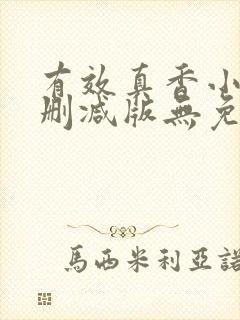 有效真香小
删减版無免
馬西米利亞諾